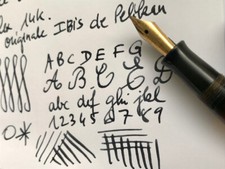 14k.
originale IBIS de Pelikan
A B C D E F G
A B C E D
abc def ghi jkl
1 2 3 4 5 6 7 8 9